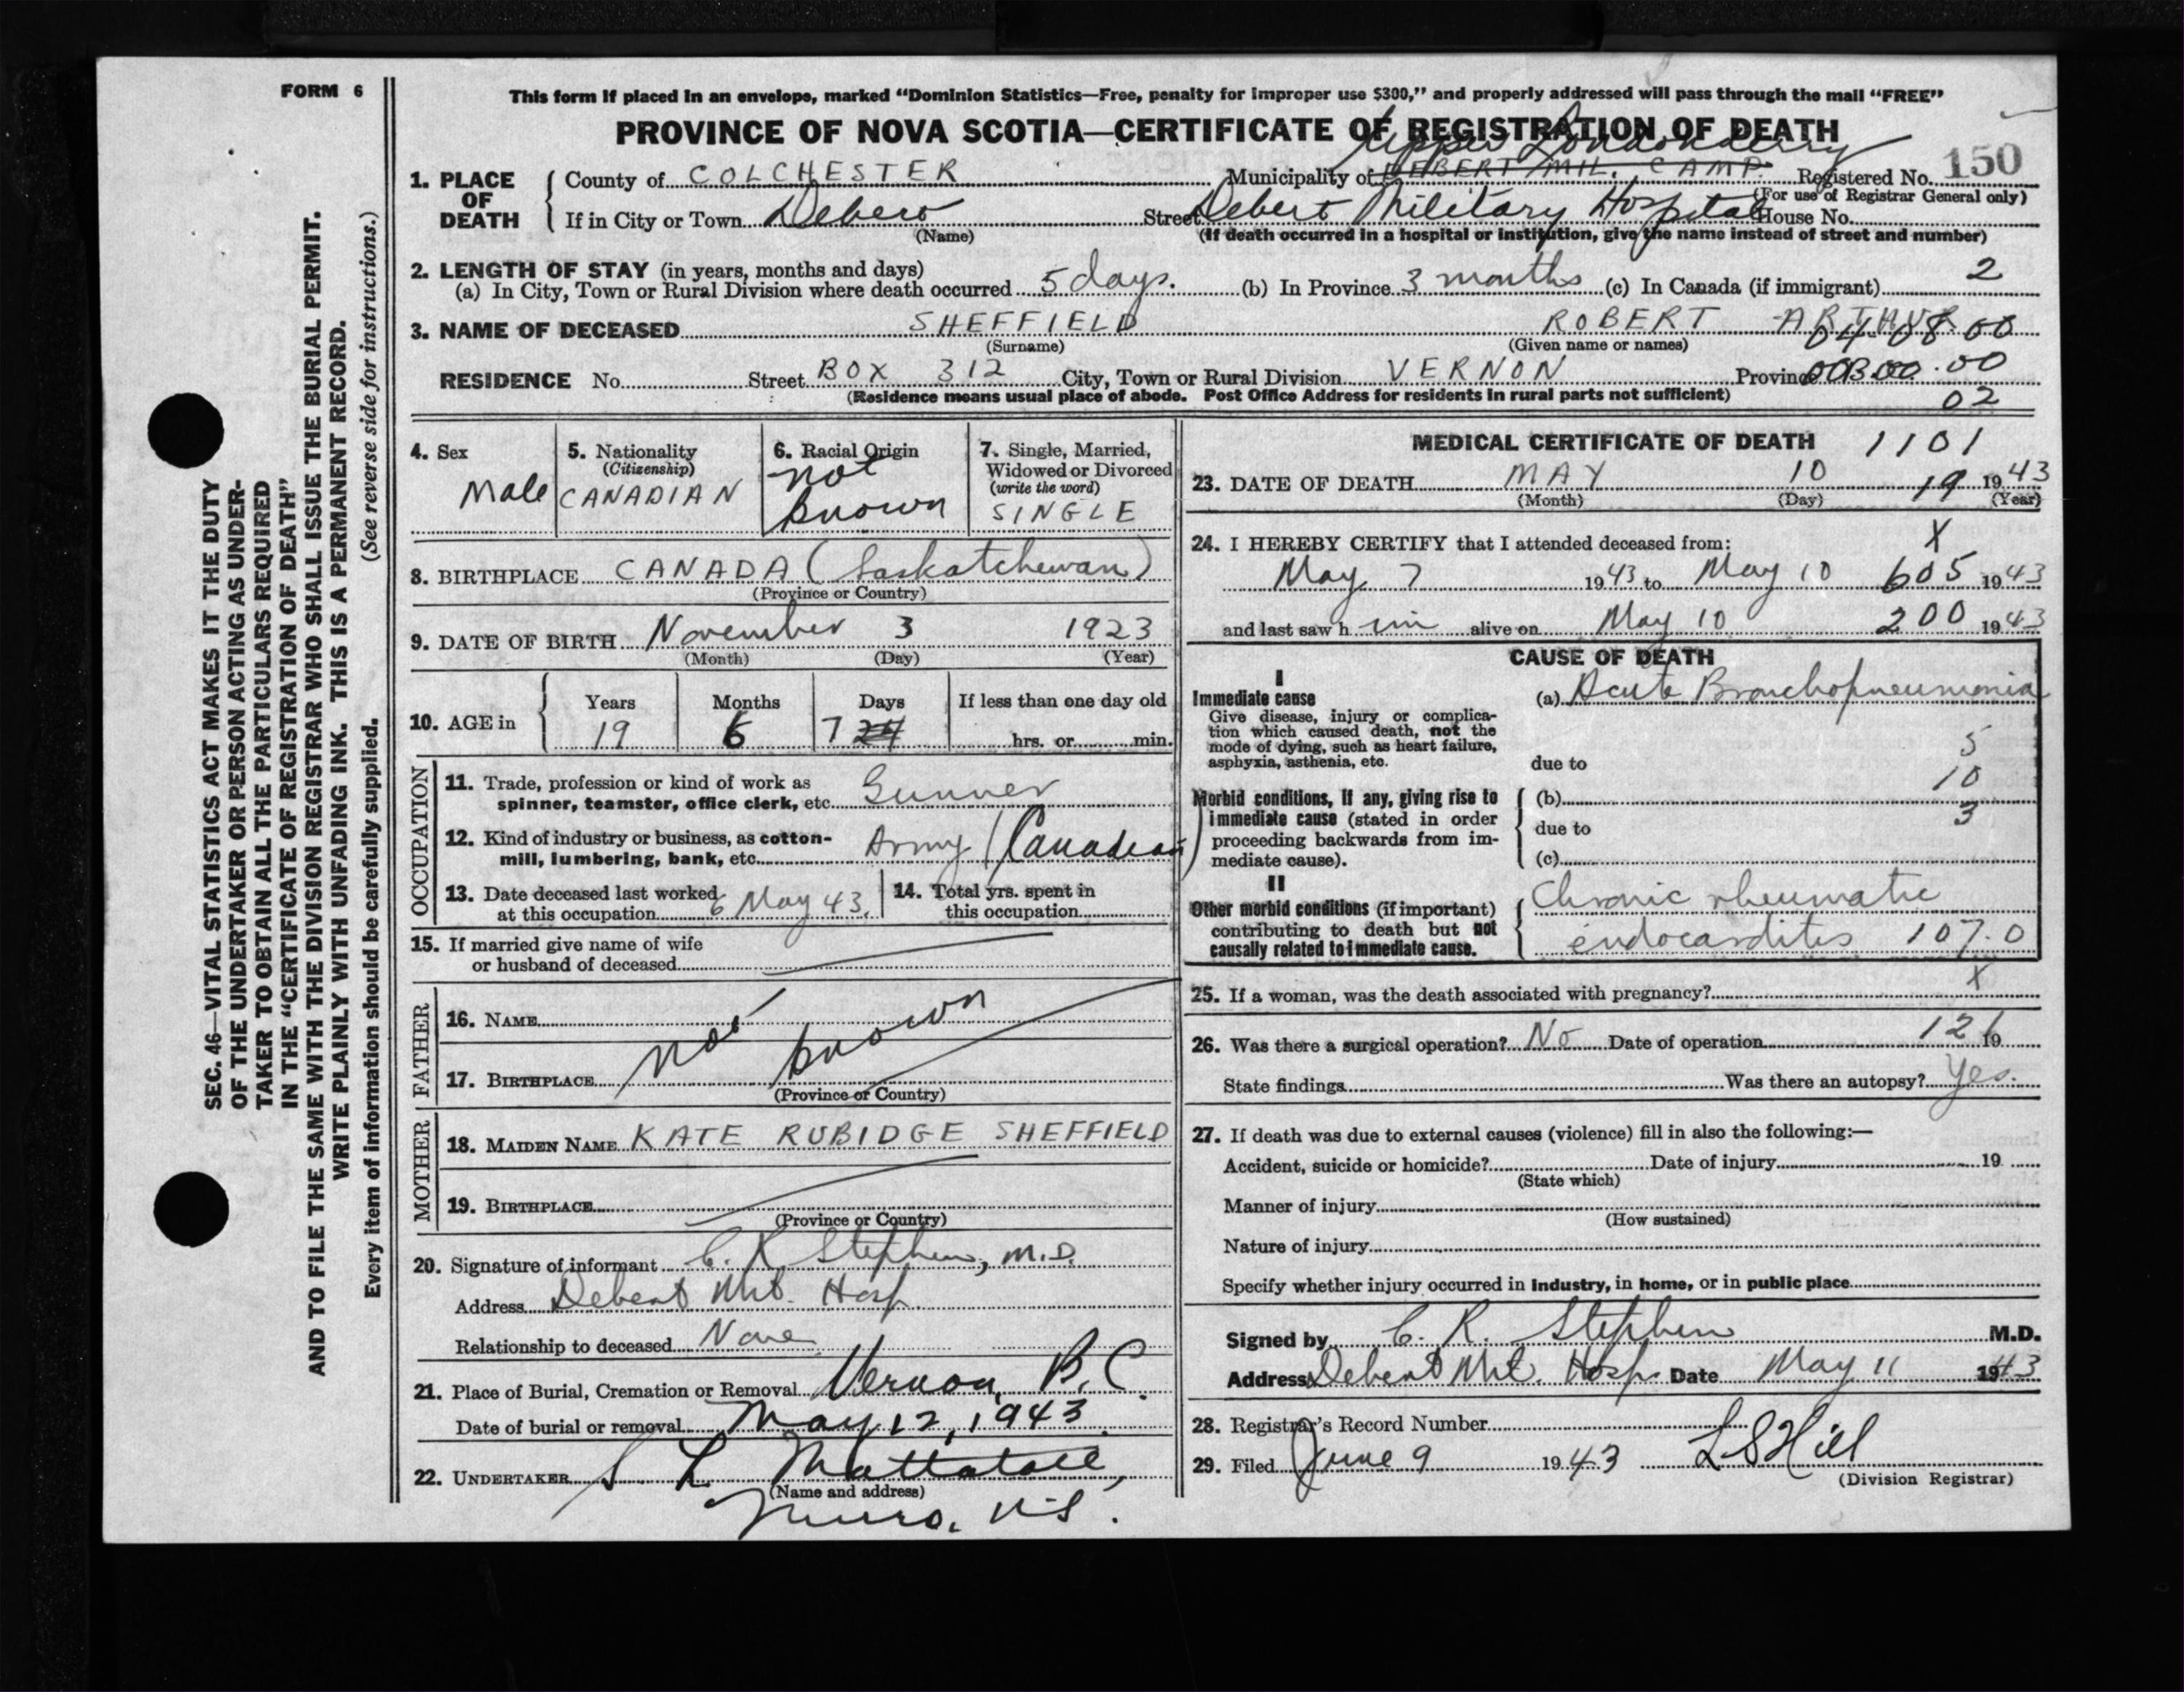 FORM 6
This form if placed in an envelope, marked "Dominion Statistics—Free, penalty for improper use $300," and properly addressed will pass through the mail "FREE"
PROVINCE OF NOVA SCOTIA—CERTIFICATE OF REGISTRATION OF DEATH
Upper Londonderry
1. PLACE OF DEATH
County of COLCHESTER Municipality of DEBERT MIL. CAMP. Registered No. 150
(For use of Registrar General only)
If in City or Town Debert Street Debert Military Hospital House No.
(Name) (If death occurred in a hospital or institution, give the name instead of street and number)
2. LENGTH OF STAY (in years, months and days)
(a) In City, Town or Rural Division where death occurred 5 days. (b) In Province 3 months (c) In Canada (if immigrant) 2
3. NAME OF DECEASED SHEFFIELD ROBERT ARTHUR 04.08.00
(Surname) (Given name or names)
RESIDENCE No. Street BOX 312 City, Town or Rural Division VERNON Province 00.00
(Residence means usual place of abode. Post Office Address for residents in rural parts not sufficient) 02
4. Sex Male
5. Nationality (Citizenship) CANADIAN
6. Racial Origin not known
7. Single, Married, Widowed or Divorced (write the word) SINGLE
8. BIRTHPLACE CANADA (Saskatchewan)
(Province or Country)
9. DATE OF BIRTH November 3 1923
(Month) (Day) (Year)
10. AGE in Years Months Days If less than one day old
19 6 7 24 hrs. or min.
OCCUPATION
11. Trade, profession or kind of work as
spinner, teamster, office clerk, etc. Gunner
12. Kind of industry or business, as cotton-
mill, lumbering, bank, etc. Army (Canadian)
13. Date deceased last worked
at this occupation 6 May 43.
14. Total yrs. spent in
this occupation
15. If married give name of wife
or husband of deceased
FATHER
16. NAME not known
17. BIRTHPLACE
(Province or Country)
MOTHER
18. MAIDEN NAME KATE RUBIDGE SHEFFIELD
19. BIRTHPLACE
(Province or Country)
20. Signature of informant C. R. Stephen, M.D.
Address Debert Mil. Hosp.
Relationship to deceased None
21. Place of Burial, Cremation or Removal Vernon, B.C.
Date of burial or removal May 12, 1943
22. UNDERTAKER S L Mattatall,
(Name and address)
Truro, N.S.
MEDICAL CERTIFICATE OF DEATH 1101
23. DATE OF DEATH MAY 10 19 1943
(Month) (Day) (Year)
24. I HEREBY CERTIFY that I attended deceased from: X
May 7 1943 to May 10 605 1943
and last saw him alive on May 10 200 1943
CAUSE OF DEATH
I
Immediate cause
Give disease, injury or complica-
tion which caused death, not the
mode of dying, such as heart failure,
asphyxia, asthenia, etc.
(a) Acute Bronchopneumonia
5
due to
10
Morbid conditions, if any, giving rise to
immediate cause (stated in order
proceeding backwards from im-
mediate cause).
(b)
3
due to
(c)
II
Other morbid conditions (if important)
contributing to death but not
causally related to immediate cause.
Chronic rheumatic
endocarditis 107.0
25. If a woman, was the death associated with pregnancy? X
26. Was there a surgical operation? No Date of operation 121 19
State findings Was there an autopsy? Yes.
27. If death was due to external causes (violence) fill in also the following:—
Accident, suicide or homicide? Date of injury 19
(State which)
Manner of injury
(How sustained)
Nature of injury
Specify whether injury occurred in industry, in home, or in public place
Signed by C. R. Stephen M.D.
Address Debert Mil. Hosp. Date May 11 1943
28. Registrar's Record Number
29. Filed June 9 1943 L S Hill
(Division Registrar)
SEC. 46—VITAL STATISTICS ACT MAKES IT THE DUTY
OF THE UNDERTAKER OR PERSON ACTING AS UNDER-
TAKER TO OBTAIN ALL THE PARTICULARS REQUIRED
IN THE "CERTIFICATE OF REGISTRATION OF DEATH"
AND TO FILE THE SAME WITH THE DIVISION REGISTRAR WHO SHALL ISSUE THE BURIAL PERMIT.
WRITE PLAINLY WITH UNFADING INK. THIS IS A PERMANENT RECORD.
Every item of information should be carefully supplied. (See reverse side for instructions.)